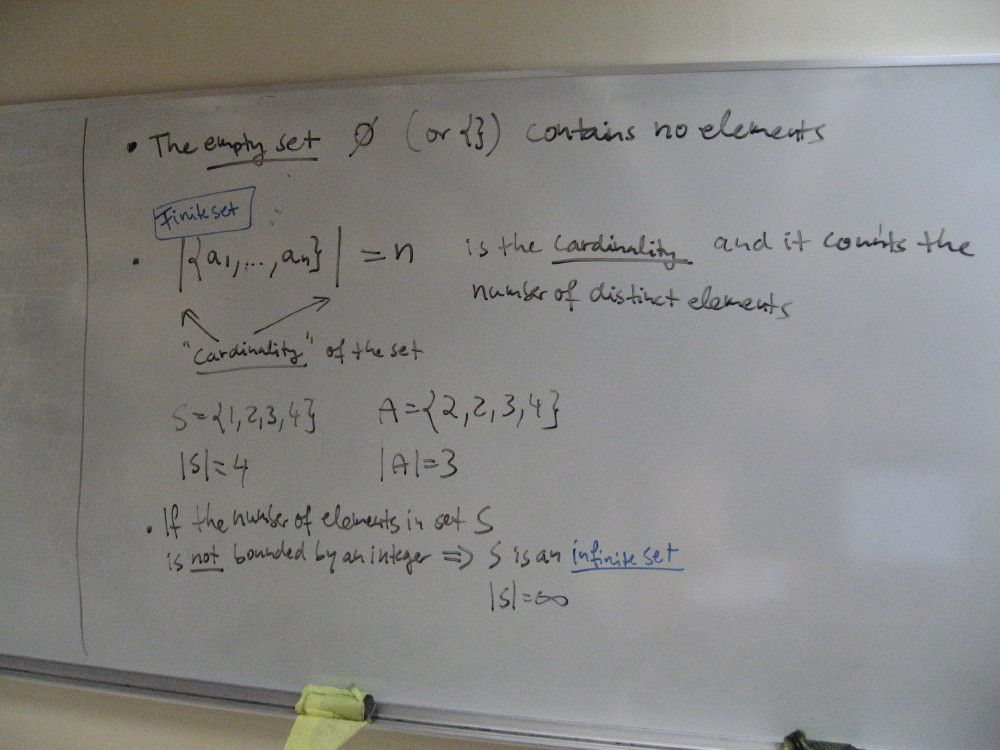 • The empty set ∅ (or {}) contains no elements
Finite set
• |{a₁,...,aₙ}| = n is the cardinality and it counts the
number of distinct elements
"Cardinality" of the set
S={1,2,3,4} A={2,2,3,4}
|S|=4 |A|=3
• If the number of elements in set S
is not bounded by an integer ⇒ S is an infinite set
|S|=∞